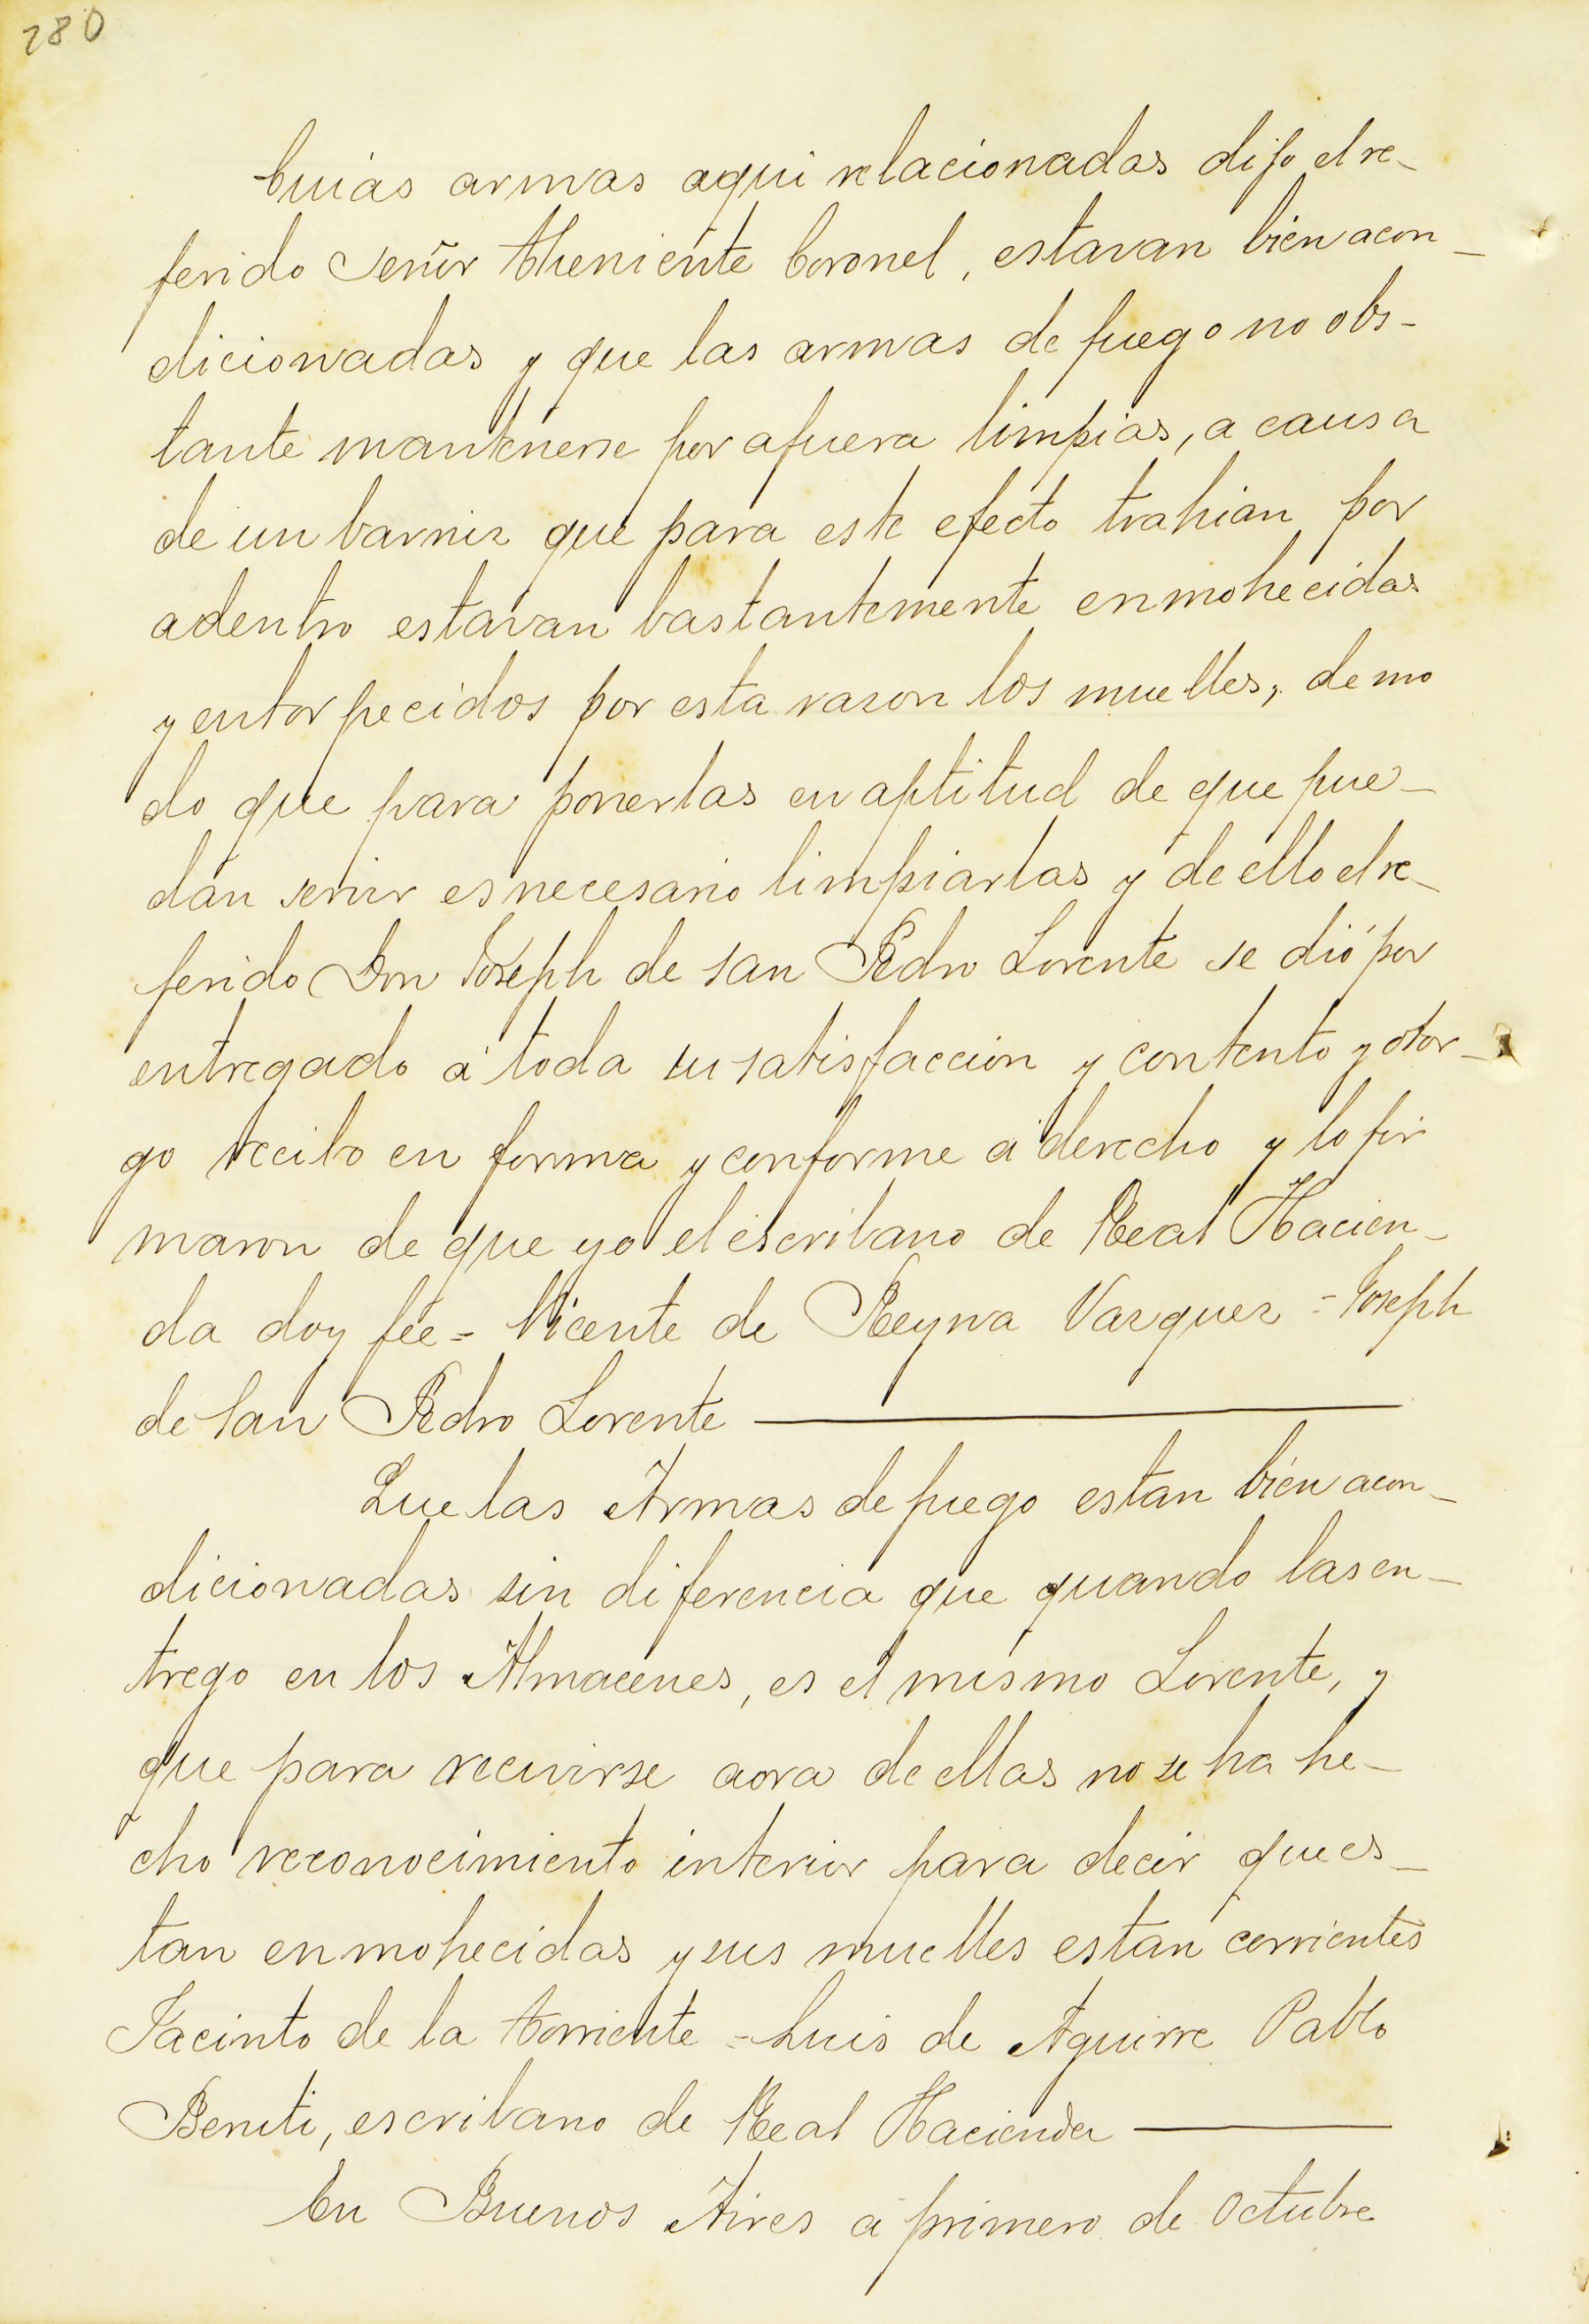 280
Cuias armas aqui relacionadas dijo el re-
ferido Señor Theniente Coronel, estavan bien acon-
dicionadas y que las armas de fuego no obs-
tante mantenerse por afuera limpias, a causa
de un barniz que para este efecto trahian por
adentro estavan bastantemente enmohecidas
y entorpecidos por esta razon los muelles, de mo
do que para ponerlas en aptitud de que pue-
dan servir es necesario limpiarlas y de ello el re-
ferido Don Joseph de san Pedro Lorente se dió por
entregado á toda su satisfaccion y contento y otor-
go recibo en forma y conforme á derecho y lo fir
maron de que yo el escribano de Real Hacien-
da doy fée = Vicente de Reyna Vazquez = Joseph
de San Pedro Lorente
Que las Armas de fuego estan bien acon-
dicionadas sin diferencia que quando las en-
trego en los Almacenes, es el mismo Lorente, y
que para recivirse aora de ellas no se ha he-
cho reconocimiento interior para decir que es-
tan enmohecidas y sus muelles estan corrientes
Jacinto de la Torriente = Luis de Aguirre Pablo
Beruti, escribano de Real Hacienda
En Buenos Aires a primero de Octubre